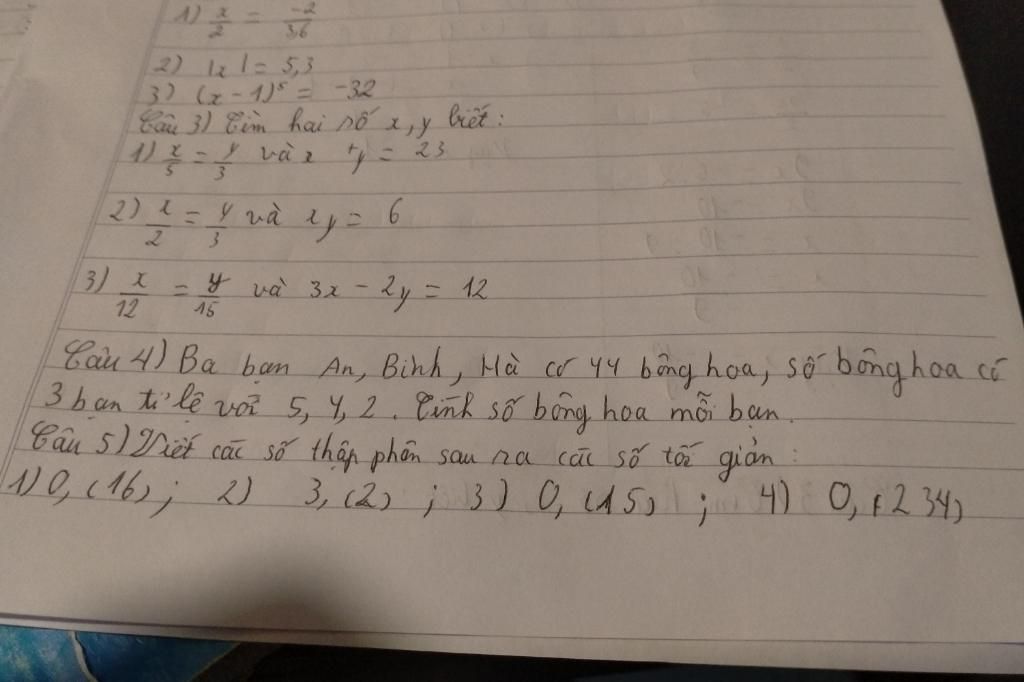 1) x/2 = -2/3,6
2) |x| = 5,3
3) (x - 1)⁵ = -32
Câu 3) Tìm hai số x, y biết:
1) x/5 = y/3 và x + y = 23
2) x/2 = y/3 và xy = 6
3) x/12 = y/15 và 3x - 2y = 12
Câu 4) Ba bạn An, Bình, Hà có 44 bông hoa, số bông hoa có
3 bạn tỉ lệ với 5, 4, 2. Tính số bông hoa mỗi bạn.
Câu 5) Viết các số thập phân sau ra các số tối giản:
1) 0,(16); 2) 3,(2); 3) 0,(15); 4) 0,(234)